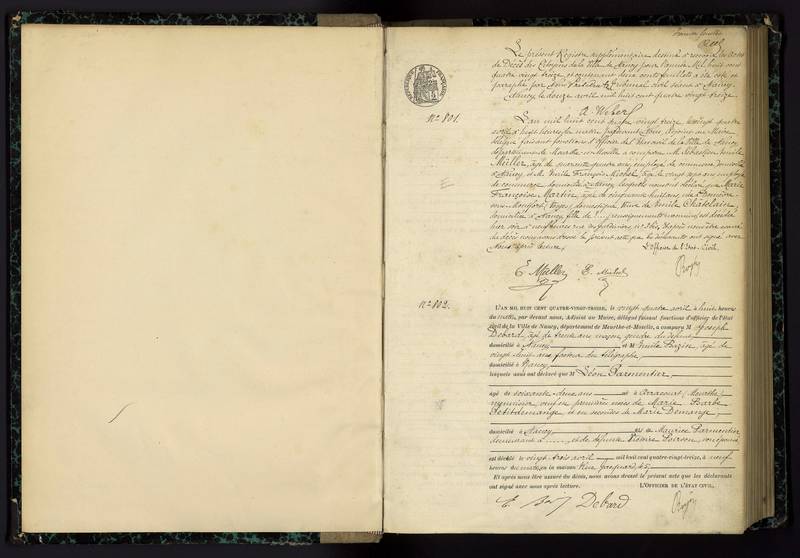 Le présent Registre supplémentaire destiné à recevoir les actes
de Décès des Citoyens de la Ville de Nancy pour l'année Mil huit cent
quatre vingt treize, et contenant deux cents feuillets a été coté et
paraphé par Nous Président du Tribunal civil séant à Nancy.
Nancy le douze avril mil huit cent quatre vingt treize.
RÉPUBLIQUE FRANÇAISE
A. Weber
N° 801.
L'an mil huit cent quatre vingt treize, le vingt quatre
avril à huit heures du matin pardevant Nous, Adjoint au Maire
délégué faisant fonctions d'officier de l'état civil de la Ville de Nancy
département de Meurthe-et-Moselle a comparu M. Sébastien Emile
Müller, âgé de quarante quatre ans, employé de commerce, domicilié
à Nancy et M. Emile François Michel, âgé de vingt ans employé
de commerce domicilié à Nancy, lesquels nous ont déclaré que Marie
Françoise Martin, âgée de cinquante huit ans, née à
Vosges, domestique, veuve de Emile Châtelain,
domiciliée à Nancy, fille de (renseignements inconnus) est décédée
hier soir à neuf heures rue
de décès nous avons dressé le présent acte que les déclarants ont signé avec
Nous après lecture.
L'Officier de l'état civil.
E Müller E. Michel
N° 802.
L'AN MIL HUIT CENT QUATRE-VINGT-TREIZE, le vingt quatre avril à huit heures
du matin, par devant nous, Adjoint au Maire, délégué faisant fonctions d'officier de l'état
civil de la Ville de Nancy, département de Meurthe-et-Moselle, a comparu M Joseph
Debard, âgé de trente ans maçon, gendre du défunt
domicilié à Nancy et M Emile âgé de
vingt huit ans facteur du télégraphe
domicilié à Nancy
lesquels nous ont déclaré que M Léon Parmentier,
âgé de soixante deux ans né à Arracourt (Meurthe)
veuf en premières noces de Marie Barbe
Petitdemange et en secondes de Marie Demange,
domicilié à Nancy fils de Maurice Parmentier
demeurant à et de défunte Victoire Poirson, son épouse
est décédé le vingt trois avril mil huit cent quatre-vingt-treize, à neuf
heures du matin, en la maison Rue Jacquard, 45,
Et après nous être assuré du décès, nous avons dressé le présent acte que les déclarants
ont signé avec nous après lecture.
L'OFFICIER DE L'ÉTAT CIVIL,
Debard